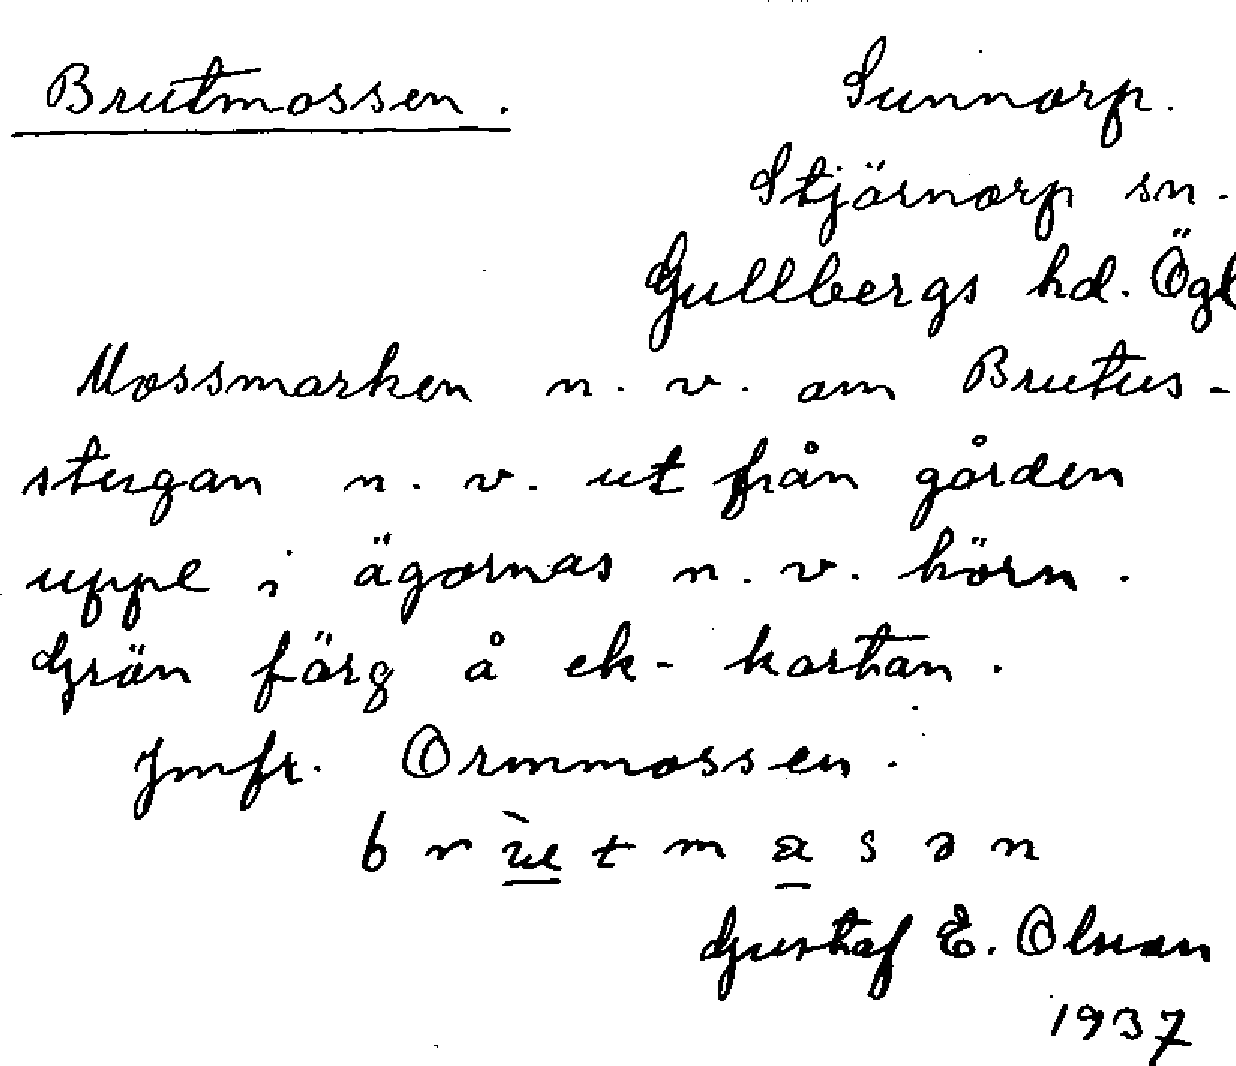 Brutmossen.
Sunnorp.
Stjärnorp sn.
Gullbergs hd. Ögl
Mossmarken n. v. om Brutus-
stugan n. v. ut från gården
uppe i ägornas n. v. hörn.
Grön färg å ek-kartan.
Jmfr. Ormmossen.
b r t m s ə n
Gustaf E. Olsson
1937